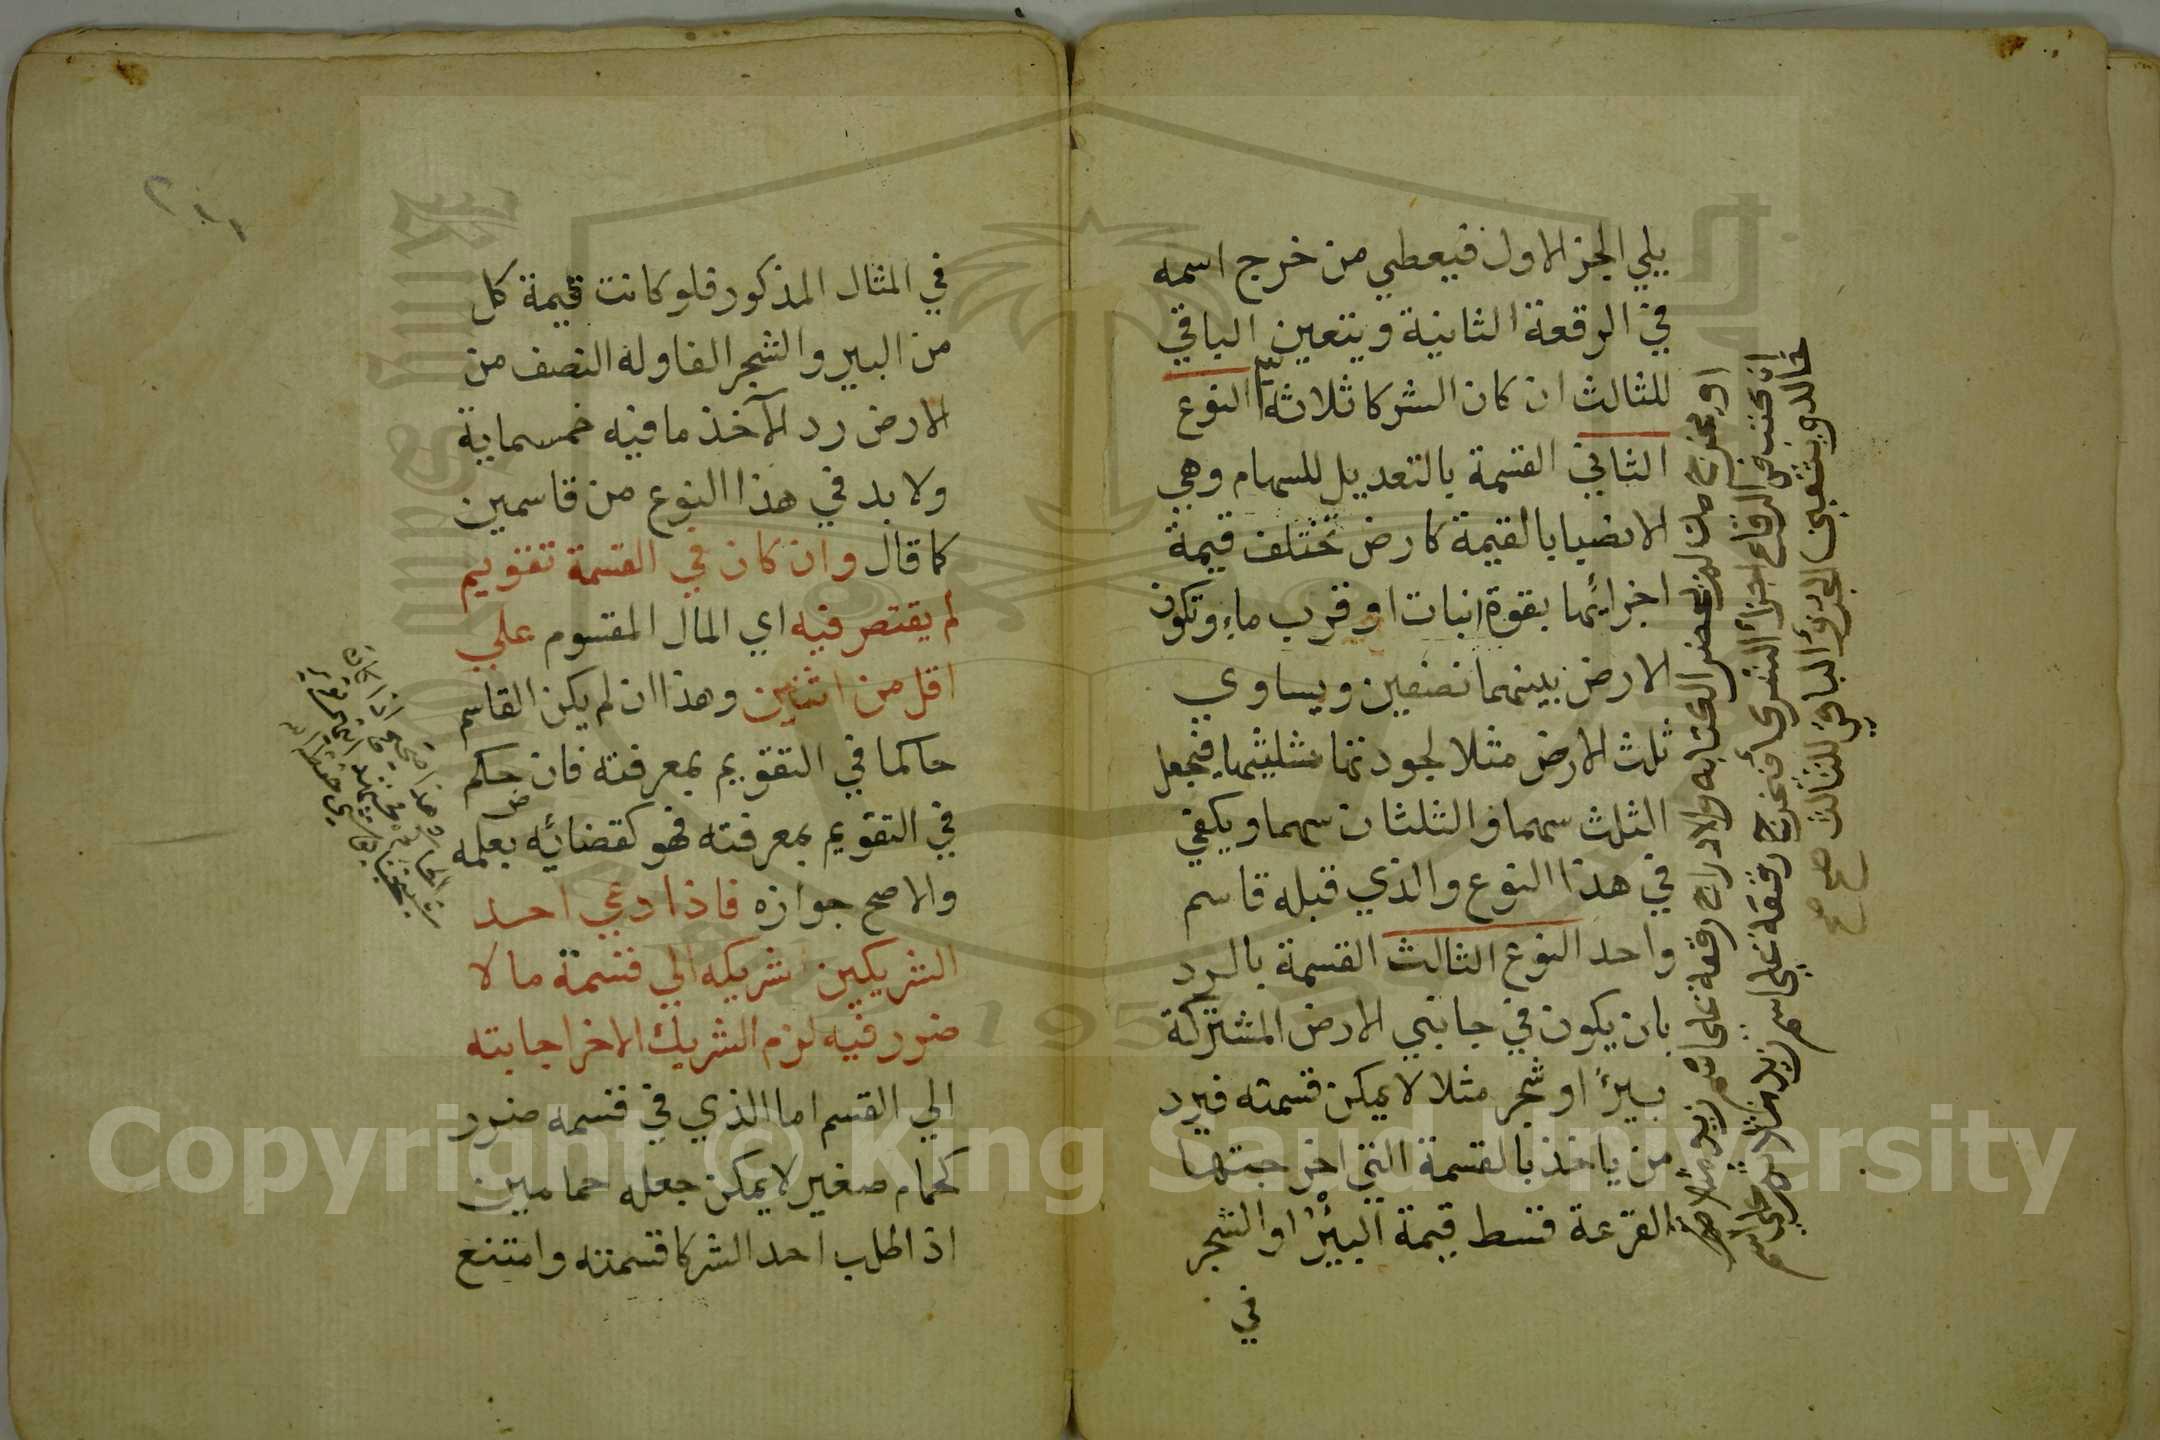 يلي الجزء الاول فيعطي من خرج اسمه
في الرقعة الثانية ويتعين الباقي
للثالث ان كان الشركا ثلاثة النوع
الثاني القسمة بالتعديل للسهام وهي
الانصبا بالقيمة كارض تختلف قيمة
اجزائها بقوة انبات او قرب ماء وتكون
الارض بينهما نصفين ويساوي
ثلث الارض مثلا لجودتها ثلثيها فيجعل
الثلث سهما والثلثان سهما ويكفي
في هذا النوع والذي قبله قاسم
واحد النوع الثالث القسمة بالرد
بان يكون في جانبي الارض المشتركة
بيرًا او شجر مثلا لا يمكن قسمته فيرد
من ياخذ بالقسمة التي اخرجتها
القرعة قسط قيمة البير او الشجر
في
او يخرج من لم يحضر الكتابه والادراج رقعة على اسم زيد مثلا
ان يكتب في الرقاع اجزأ فيخرج رقعة على اسم زيد مثلا على اسم
خالد ويتعين الجزؤ الباقي للثالث صح صح
٢١١
في المثال المذكور فلو كانت قيمة كل
من البير والشجر الفا وله النصف من
الارض رد الآخذ ما فيه خمسماية
ولا بد في هذا النوع من قاسمين
كما قال وان كان في القسمة تقويم
لم يقتصر فيه اي المال المقسوم علي
اقل من اثنين وهذا ان لم يكن القاسم
حاكما في التقويم بمعرفته فان حكم
في التقويم بمعرفته فهو كقضائه بعلمه
والاصح جوازه فاذا دعي احد
الشريكين شريكه الي قسمة ما لا
ضرر فيه لزم الشريك الاخر اجابته
الي القسم اما الذي في قسمه ضرر
كحمام صغير لا يمكن جعله حمامين
اذا طلب احد الشركا قسمته وامتنع
Copyright © King Saud University
195